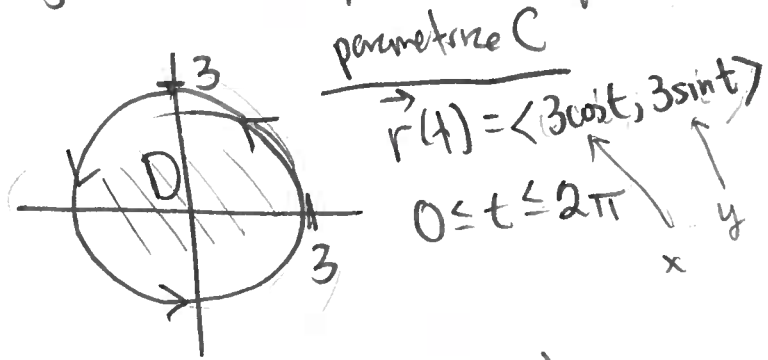 parametrize C
3
r⃗(t) = <3cost, 3sint>
D
0 ≤ t ≤ 2π
3
x
y